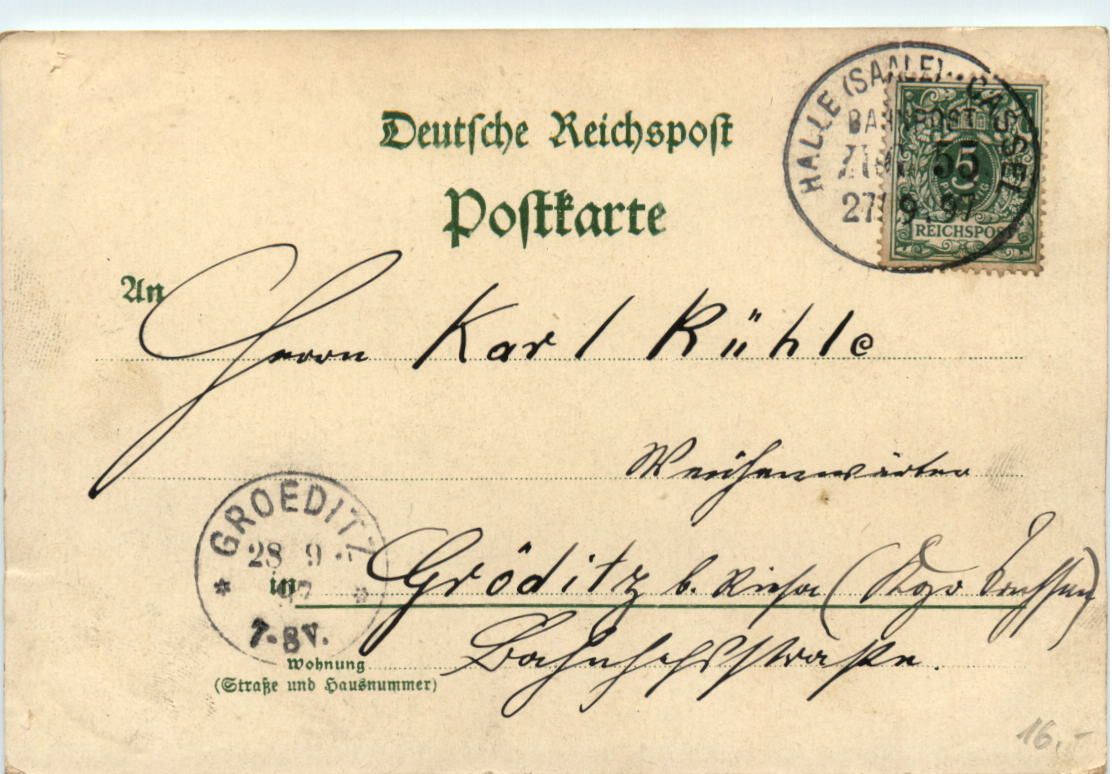 Deutsche Reichspost
Postkarte
HALLE (SAALE) - CASSEL
BAHNPOST
ZUG 55
27 9.97
5
PFENNIG
REICHSPOST
An
Herrn Karl Rühle
Weichenwärter
in Gröditz b. Riesa (Kgr. Sachsen)
Bahnhofsstraße.
GROEDITZ
28 9
97
7-8V.
Wohnung
(Straße und Hausnummer)
16,-